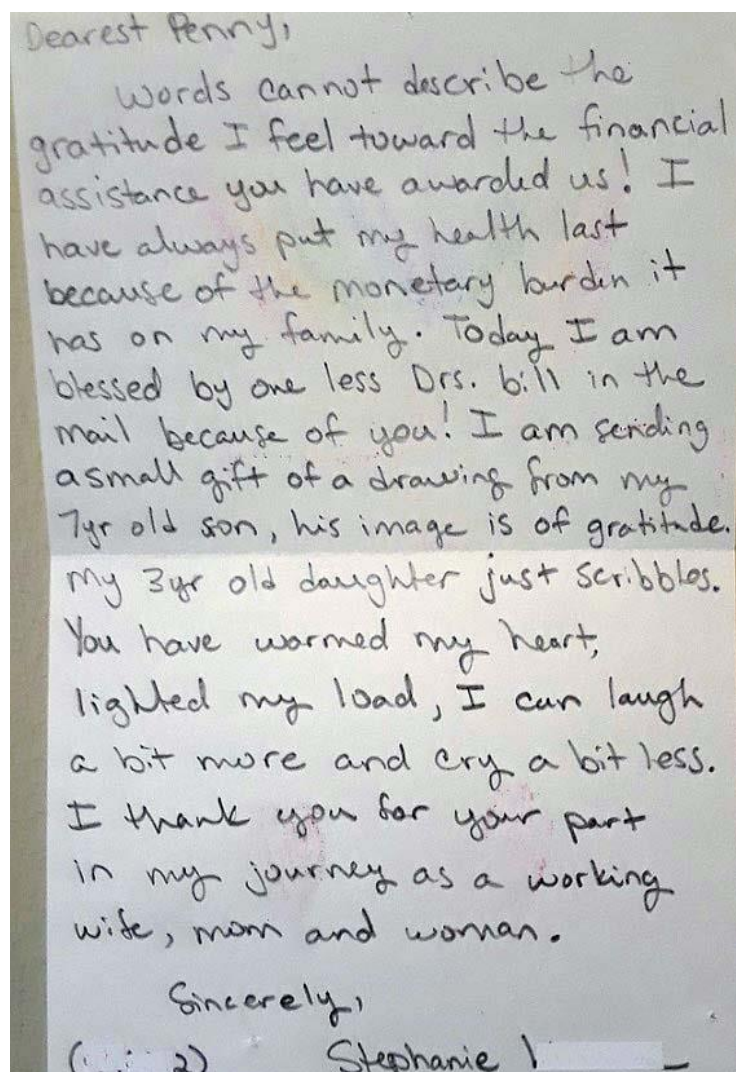 Dearest Penny,
Words cannot describe the
gratitude I feel toward the financial
assistance you have awarded us! I
have always put my health last
because of the monetary burden it
has on my family. Today I am
blessed by one less Drs. bill in the
mail because of you! I am sending
a small gift of a drawing from my
7yr old son, his image is of gratitude.
My 3yr old daughter just scribbles.
You have warmed my heart,
lighted my load, I can laugh
a bit more and cry a bit less.
I thank you for your part
in my journey as a working
wife, mom and woman.
Sincerely,
Stephanie